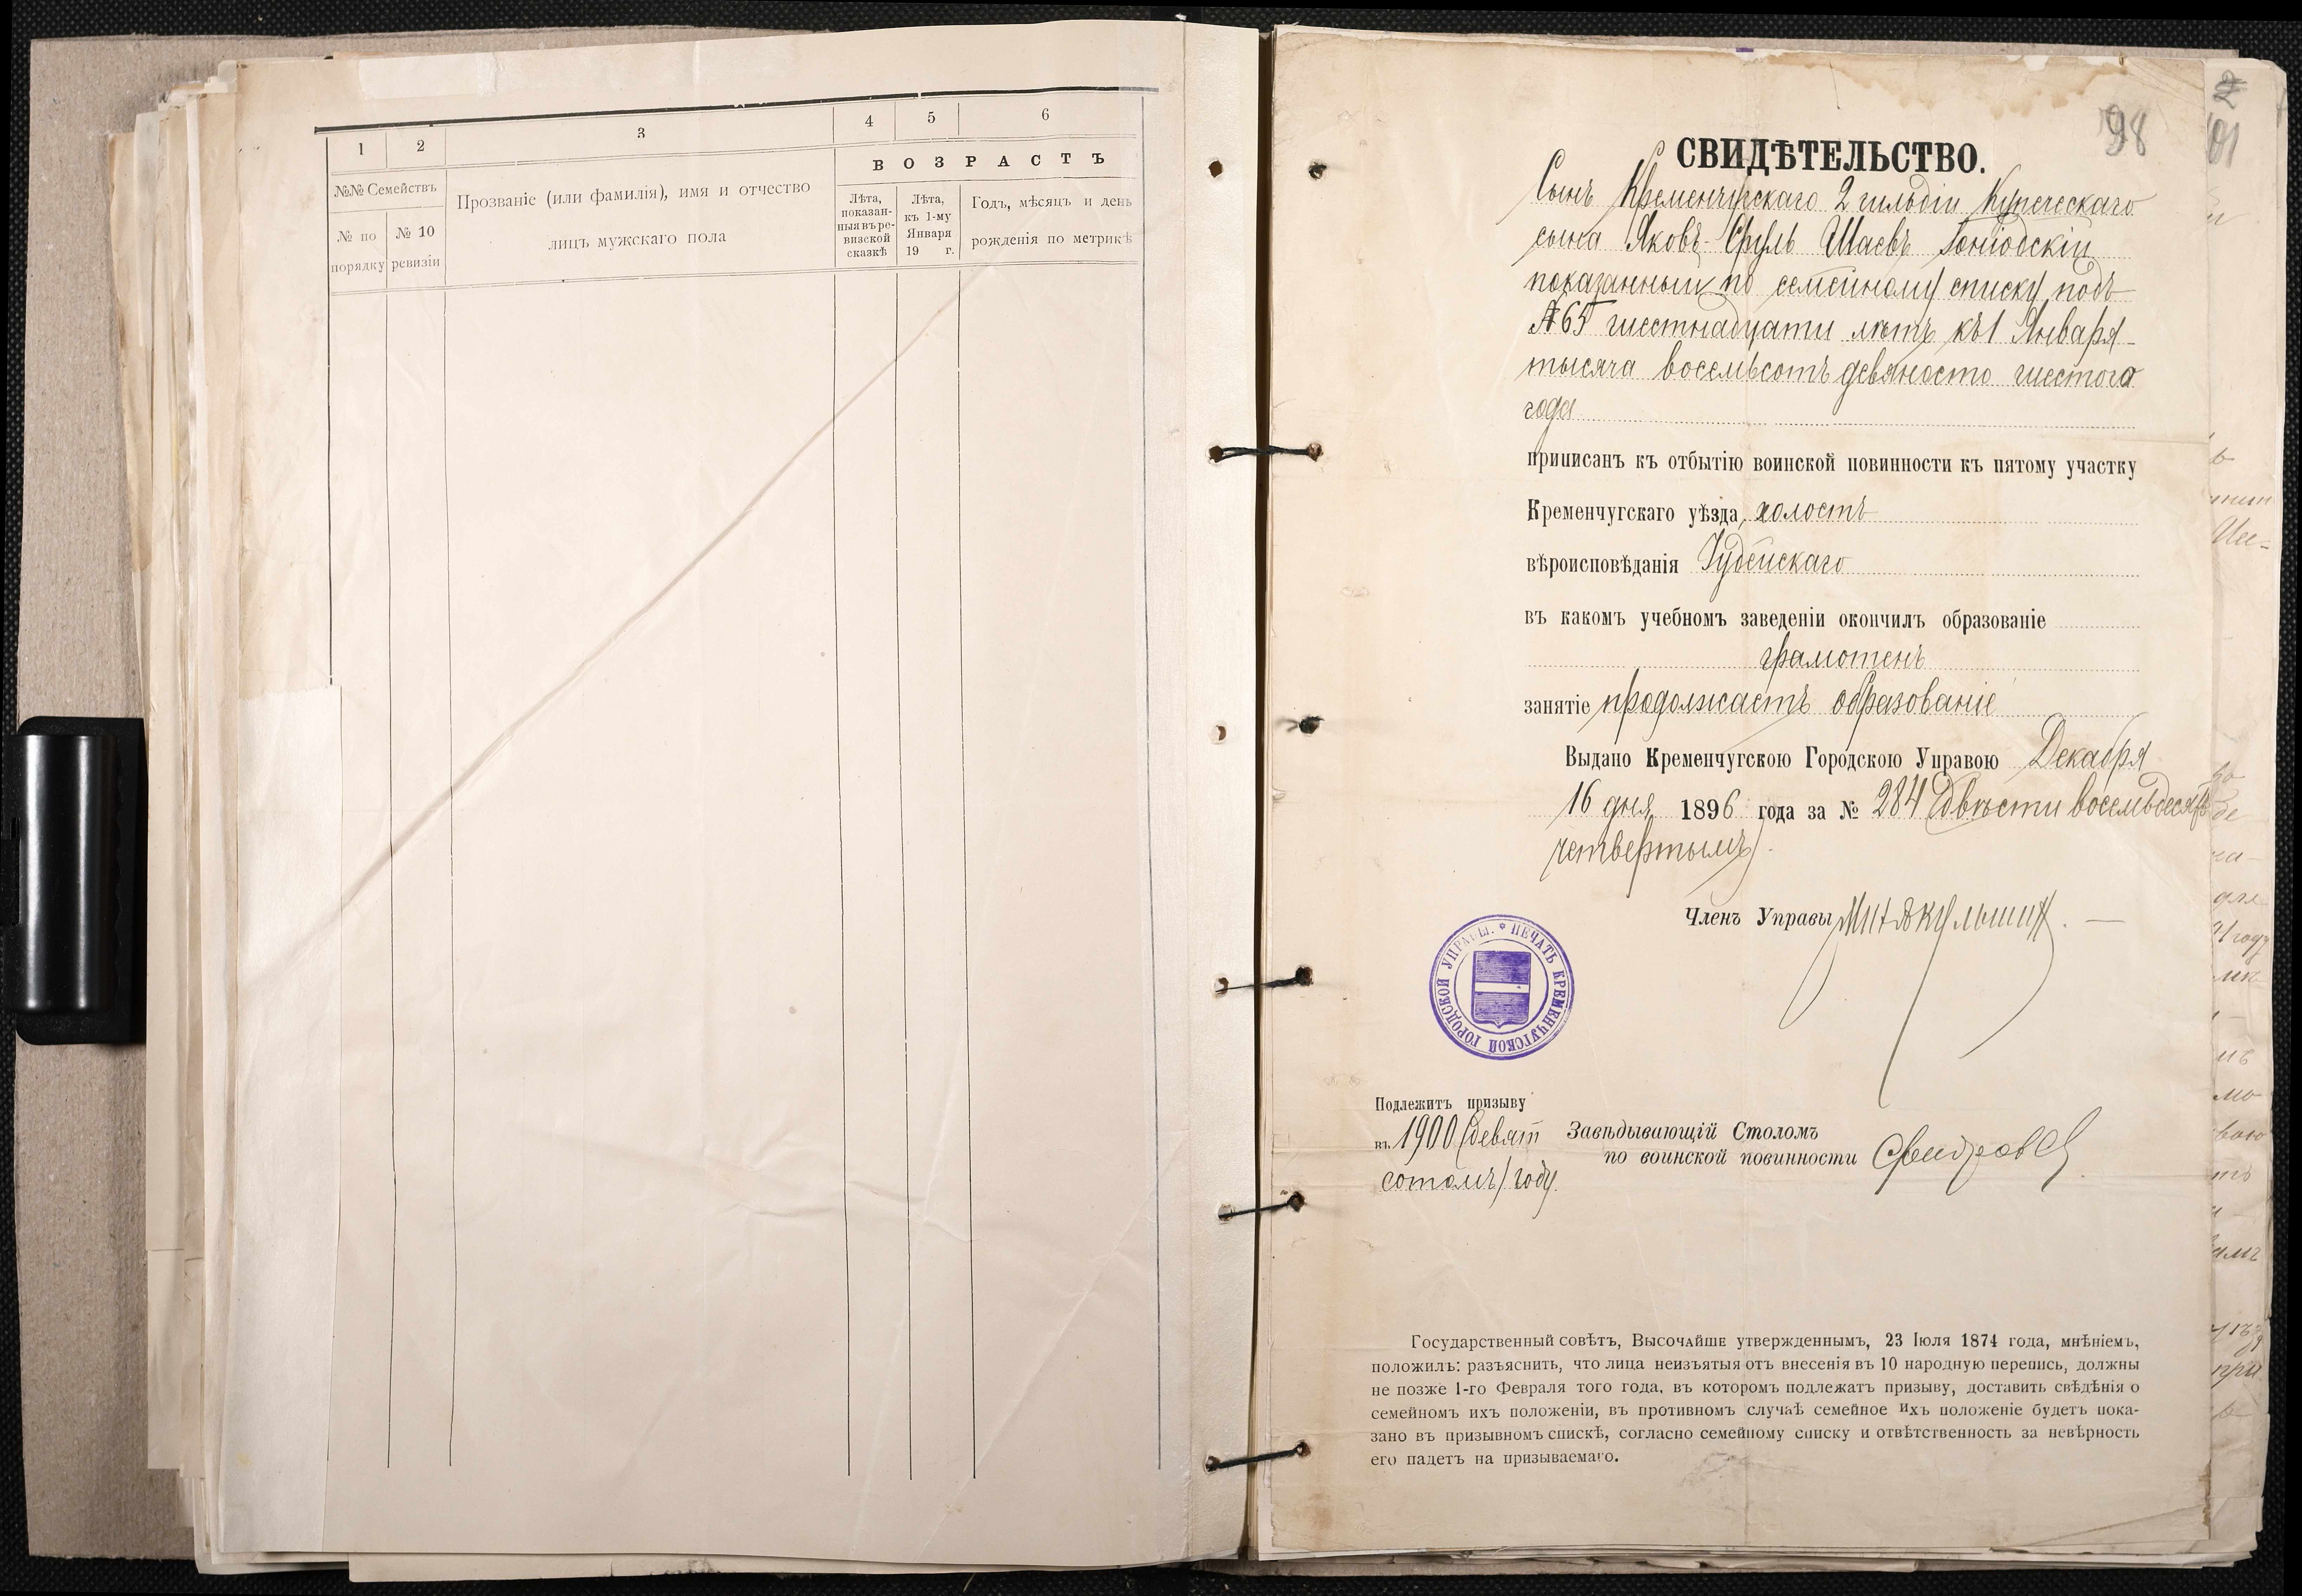 1
2
3
4
5
6
№№ Семействъ
Прозваніе (или фамилія), имя и отчество
лицъ мужскаго пола
ВОЗРАСТЪ
№ по
порядку
№ 10
ревизіи
Лѣта,
показан-
ныя въ ре-
визской
сказкѣ
Лѣта,
къ 1-му
Января
19 г.
Годъ, мѣсяцъ и день
рожденія по метрикѣ
98
СВИДѢТЕЛЬСТВО.
Сынъ Кременчугскаго 2 гильдіи Купеческаго
сына Яковъ-Сруль Шаевъ Гоніодскій
показанный по семейному списку подъ
№ 65 шестнадцати лѣтъ къ 1 Января
тысяча восемьсотъ девяносто шестого
года
приписанъ къ отбытію воинской повинности къ пятому участку
Кременчугскаго уѣзда, холостъ
вѣроисповѣданія Іудейскаго
въ какомъ учебномъ заведеніи окончилъ образованіе
грамотенъ
занятіе продолжаетъ образованіе
Выдано Кременчугскою Городскою Управою Декабря
16 дня 1896 года за № 284 (двѣсти восемьдесятъ
четвертымъ).
Членъ Управы
* ПЕЧАТЬ КРЕМЕНЧУГСКОЙ ГОРОДСКОЙ УПРАВЫ.
Подлежитъ призыву
въ 1900 (девят
сотомъ) году.
Завѣдывающій Столомъ
по воинской повинности
Государственный совѣтъ, Высочайше утвержденнымъ, 23 Іюля 1874 года, мнѣніемъ,
положилъ: разъяснить, что лица неизъятыя отъ внесенія въ 10 народную перепись, должны
не позже 1-го Февраля того года, въ которомъ подлежатъ призыву, доставить свѣдѣнія о
семейномъ ихъ положеніи, въ противномъ случаѣ семейное ихъ положеніе будетъ пока-
зано въ призывномъ спискѣ, согласно семейному списку и отвѣтственность за невѣрность
его падетъ на призываемаго.